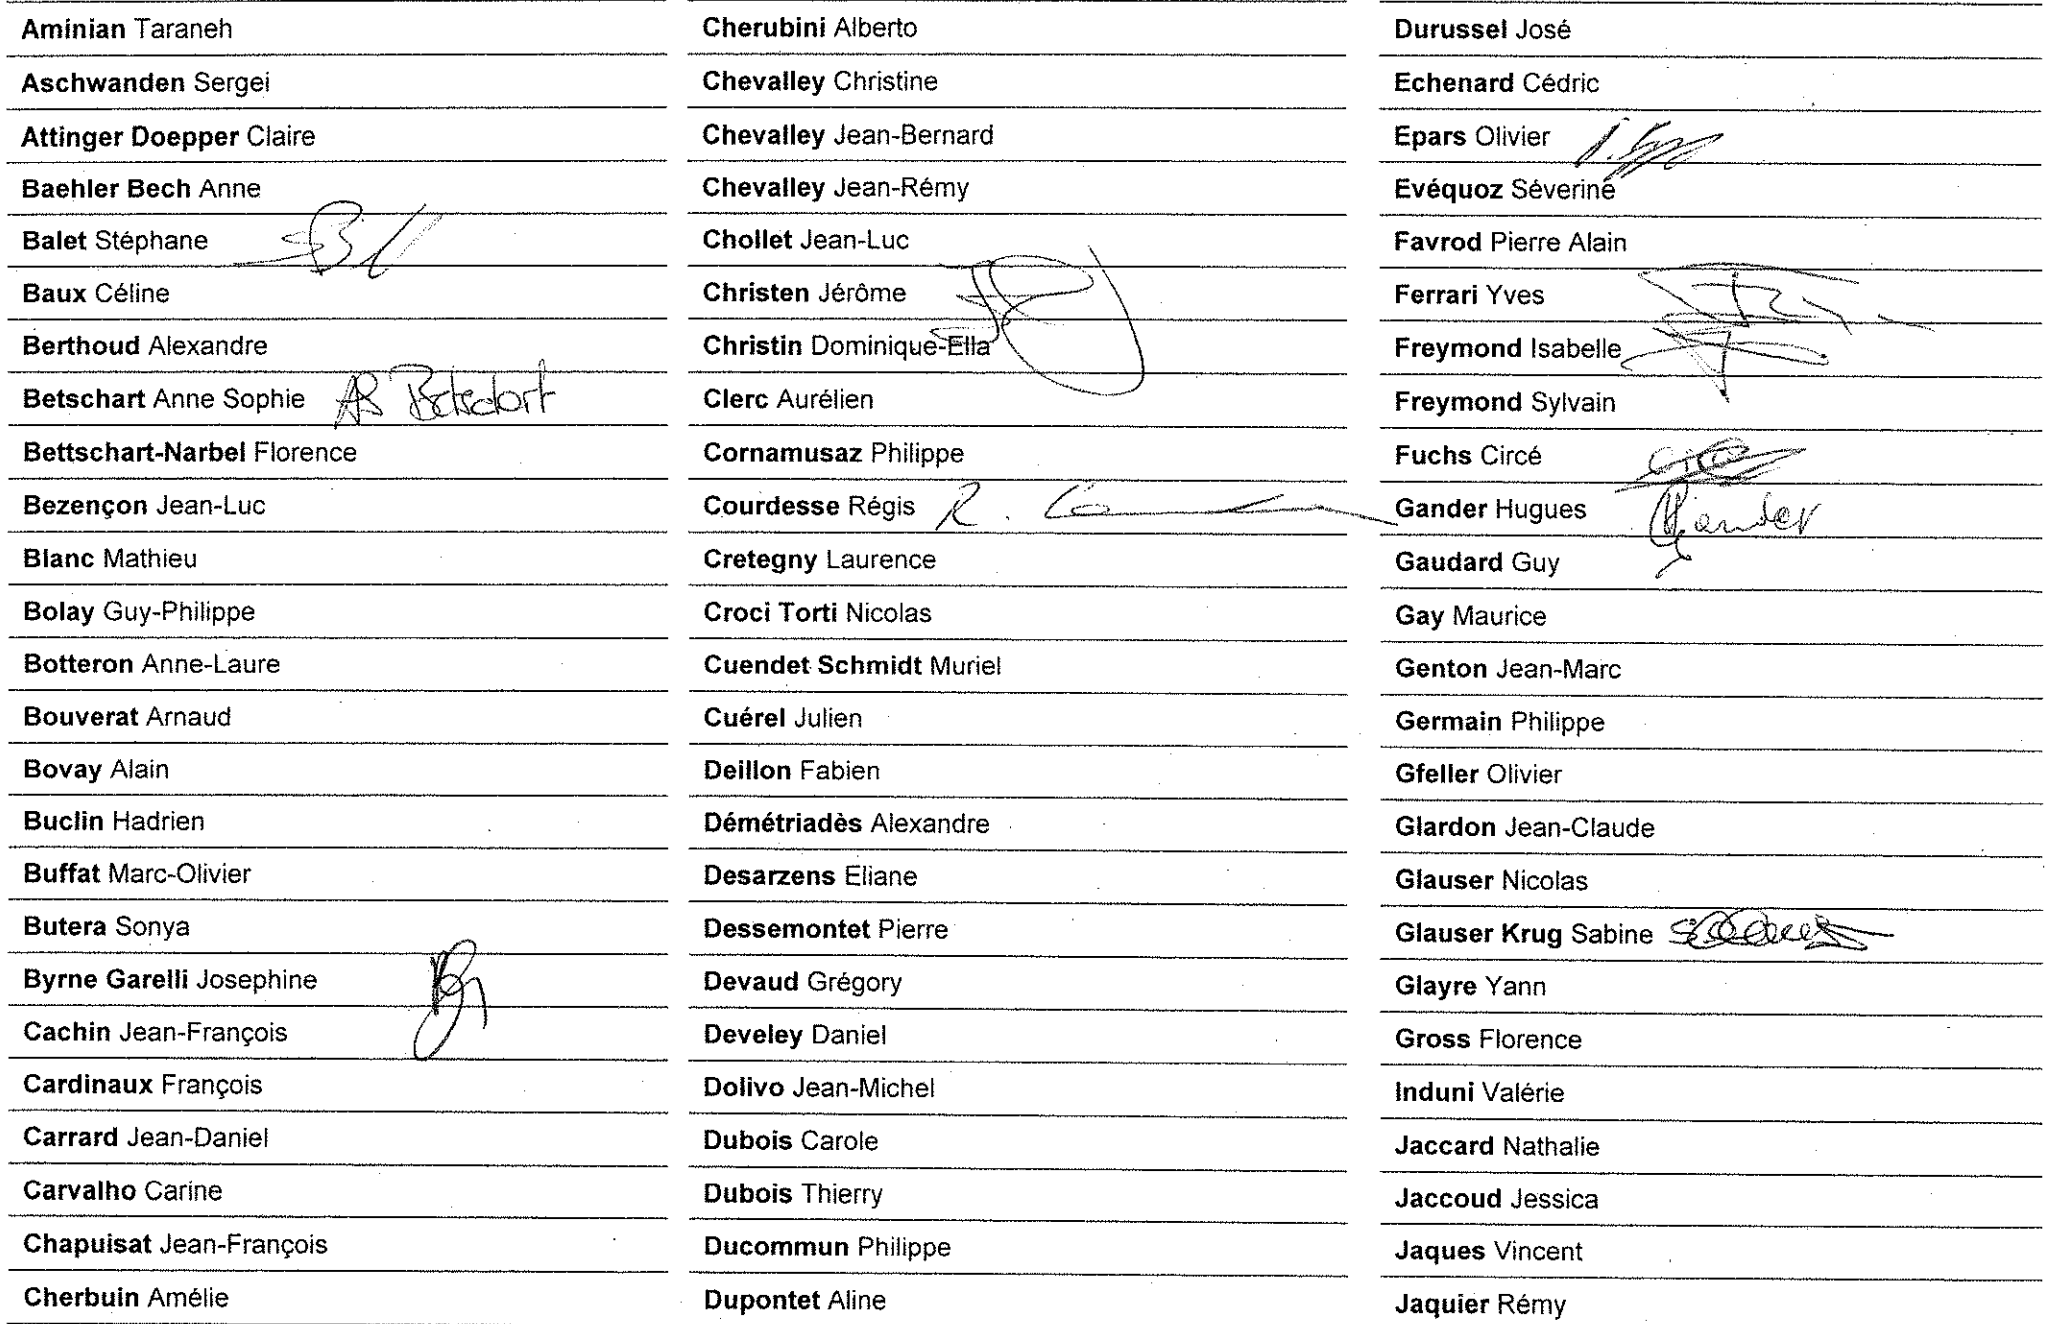 Aminian Taraneh
Aschwanden Sergei
Attinger Doepper Claire
Baehler Bech Anne
Balet Stéphane
Baux Céline
Berthoud Alexandre
Betschart Anne Sophie AS Betschart
Bettschart-Narbel Florence
Bezençon Jean-Luc
Blanc Mathieu
Bolay Guy-Philippe
Botteron Anne-Laure
Bouverat Arnaud
Bovay Alain
Buclin Hadrien
Buffat Marc-Olivier
Butera Sonya
Byrne Garelli Josephine
Cachin Jean-François
Cardinaux François
Carrard Jean-Daniel
Carvalho Carine
Chapuisat Jean-François
Cherbuin Amélie
Cherubini Alberto
Chevalley Christine
Chevalley Jean-Bernard
Chevalley Jean-Rémy
Chollet Jean-Luc
Christen Jérôme
Christin Dominique-Ella
Clerc Aurélien
Cornamusaz Philippe
Courdesse Régis R.
Cretegny Laurence
Croci Torti Nicolas
Cuendet Schmidt Muriel
Cuérel Julien
Deillon Fabien
Démétriadès Alexandre
Desarzens Eliane
Dessemontet Pierre
Devaud Grégory
Develey Daniel
Dolivo Jean-Michel
Dubois Carole
Dubois Thierry
Ducommun Philippe
Dupontet Aline
Durussel José
Echenard Cédric
Epars Olivier
Evéquoz Séverine
Favrod Pierre Alain
Ferrari Yves
Freymond Isabelle
Freymond Sylvain
Fuchs Circé
Gander Hugues Gander
Gaudard Guy
Gay Maurice
Genton Jean-Marc
Germain Philippe
Gfeller Olivier
Glardon Jean-Claude
Glauser Nicolas
Glauser Krug Sabine
Glayre Yann
Gross Florence
Induni Valérie
Jaccard Nathalie
Jaccoud Jessica
Jaques Vincent
Jaquier Rémy